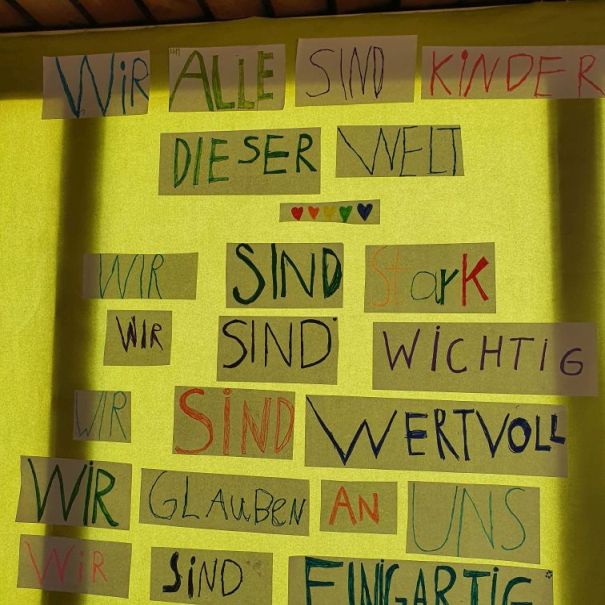 WiR ALLE SIND KiNDER
DIESER WELT
WIR SIND StarK
WIR SIND WICHTIG
WIR SiND WERTVOLL
WiR GLAuBEN AN UNS
WiR SiND EINIGARTIG